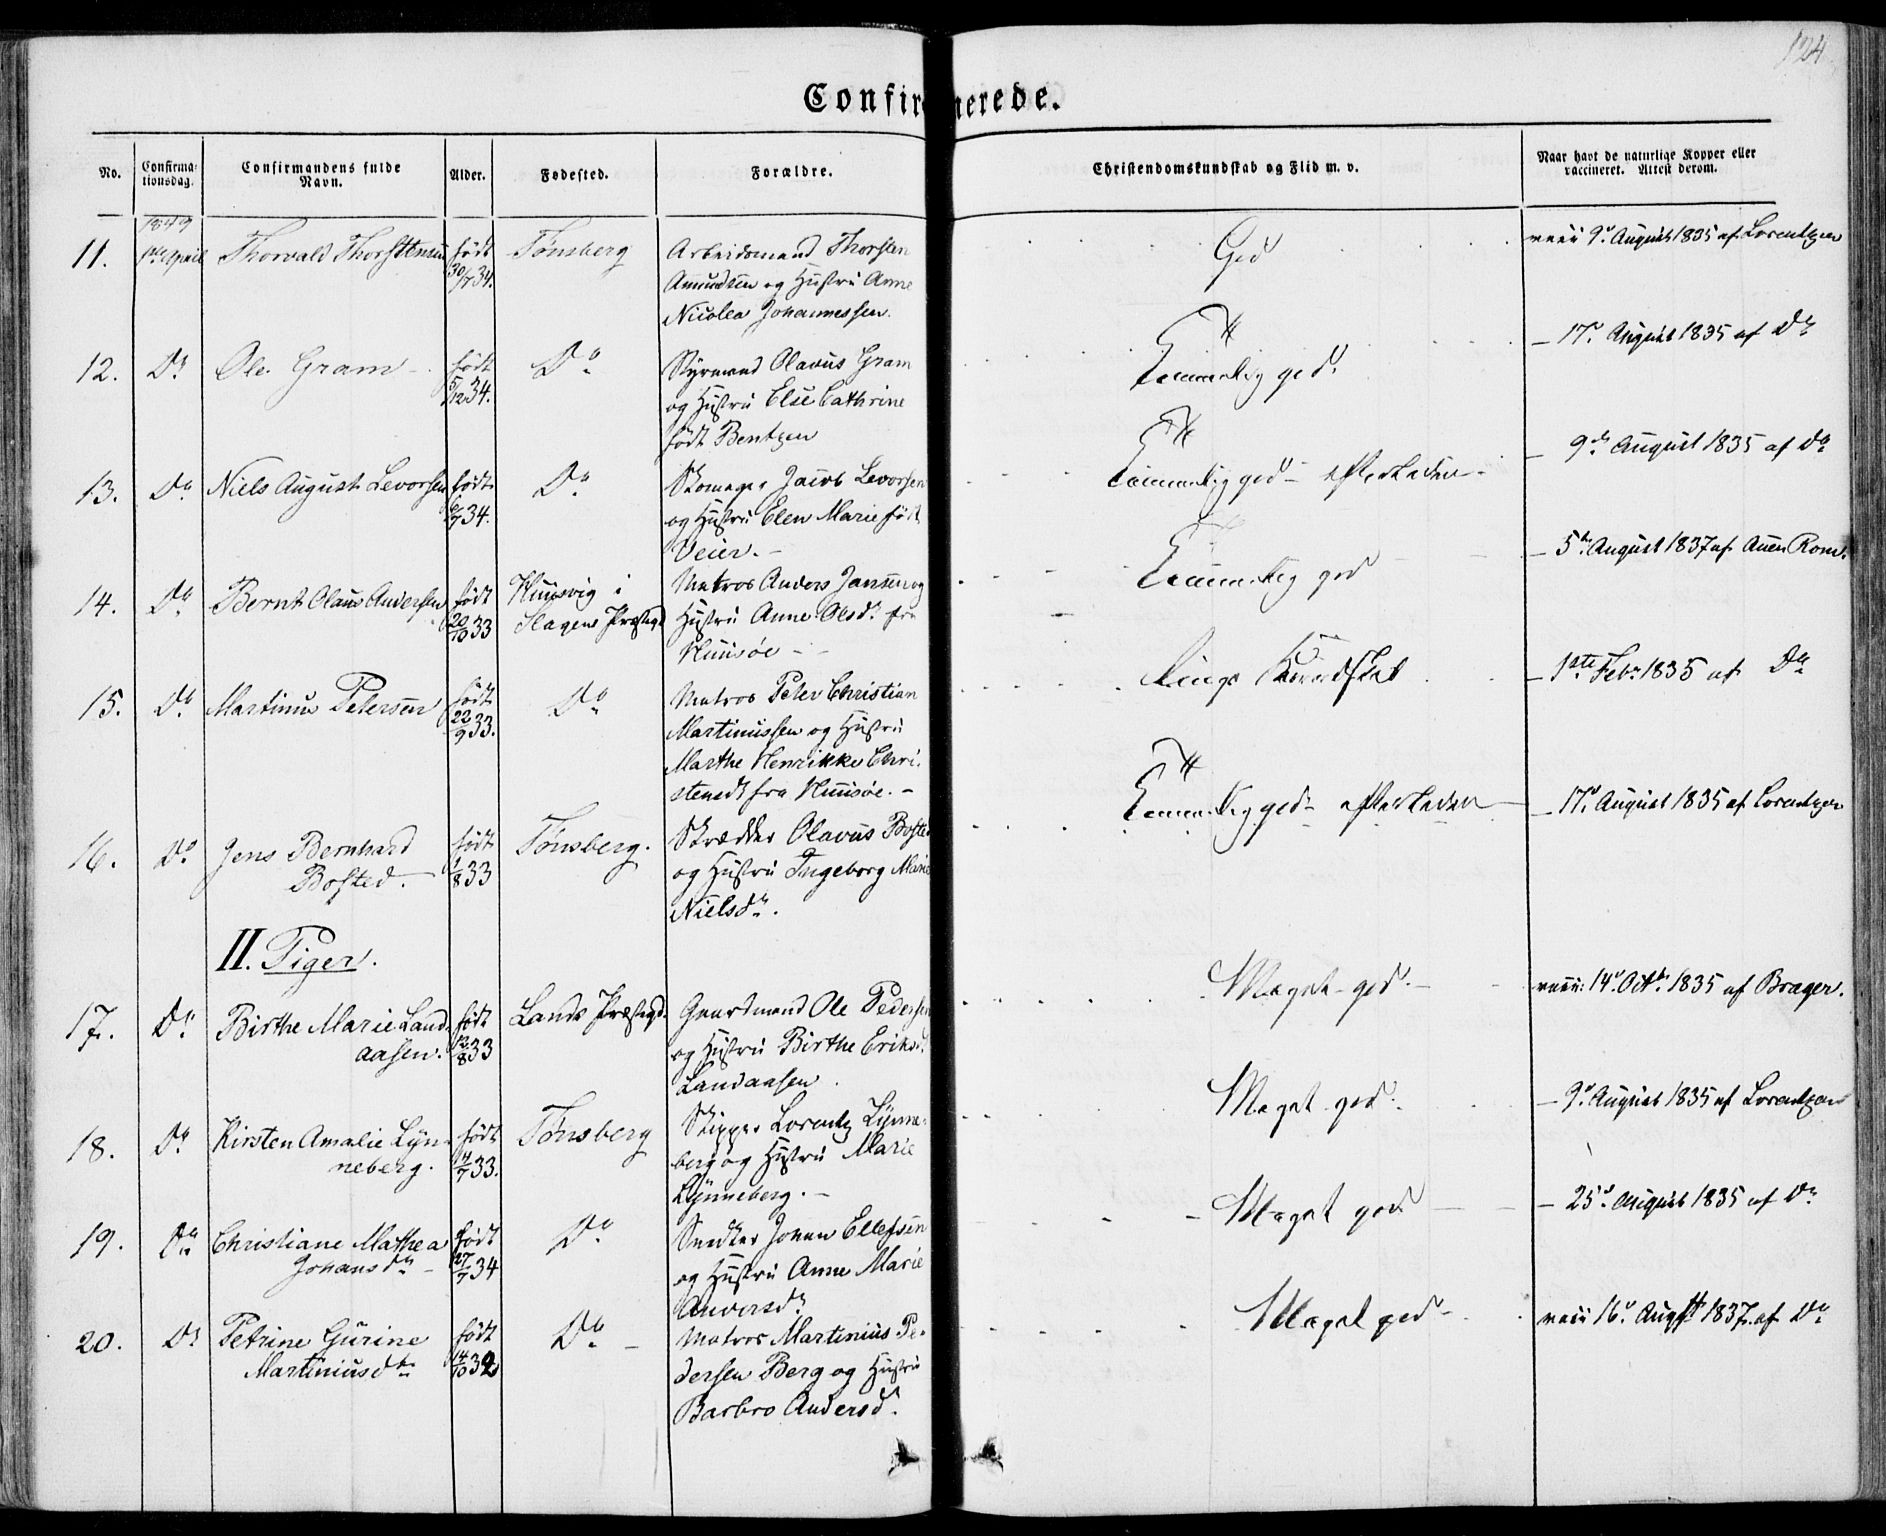 124
Confirmerede.
No.
Confirma-
tionsdag.
Confirmandens fulde
Navn.
Alder.
Fødested.
Forældre.
Christendomskundskab og Flid m. v.
Naar havt de naturlige Kopper eller
vaccineret. Attest derom.
1849
11. 1ste April Thorvald Thorstensen født 30/7 34. Tønsberg Arbeidsmand Thorsten God vacc 9d August 1835 af Lorentzen
Amundsen og Hustru Anne
Nicolea Johannessen.
12. Do Ole Gram født 5/12 34. Do Styrmand Olavus Gram Temmelig god. – 17d August 1835 af Do
og Hustru Else Cathrine
født Bentzen
13. Do Niels August Levorsen født 6/7 34. Do Skomager Jacob Levorsen Temmelig god – efterladen – 9de August 1835 af Do
og Hustru Elen Marie født
Veier. –
14. Do Bernt Olaus Andersen født 20/10 33 Huusvig i Matros Anders Jansen og Temmelig god – 5te August 1837 af Auen Rom.
Slagens Præstegd Hustru Anne Olsdr fra
Huusøe –
15. Do Martinus Petersen født 22/9 33. Do Matros Peter Christian Ringe Kundskab – 1ste Febr 1835 af Do
Martinussen og Hustru
Marthe Henrikke Chri-
stensdr fra Huusøe. –
16. Do Jens Bernhard født 1/8 33 Tønsberg. Skrædder Olavus Bosted Temmelig god – efterladen – 17d August 1835 af Lorentzen
Bosted. og Hustru Ingeborg Marie
Nielsdr.
II. Piger.
17. Do Birthe Marie Land- født 12/8 33 Lands Præstegd. Gaardmand Ole Pedersen Meget god. – vacc: 14d Octbr 1835 af Brager.
aasen. og Hustru Birthe Eriksd.
Landaasen.
18. Do Kirsten Amalie Lyn- født 4/7 33. Tønsberg Skipper Lorentz Lynne- Meget god. – 9d August 1835 af Lorentzen
neberg. berg og Hustru Marie
Lynneberg. –
19. Do Christiane Mathea født 27/7 34 Do Snedker Johan Ellefsen – Meget god – 25d August 1835 af Do
Johansdr – og Hustru Anne Marie
Andersdr
20. Do Petrine Gurine født 14/10 32 Do – Matros Martinius Pe- Meget god – vacc 16d Augst 1837 af Do
Martiniusdtr dersen Berg og Hustru
Barbro Andersd.